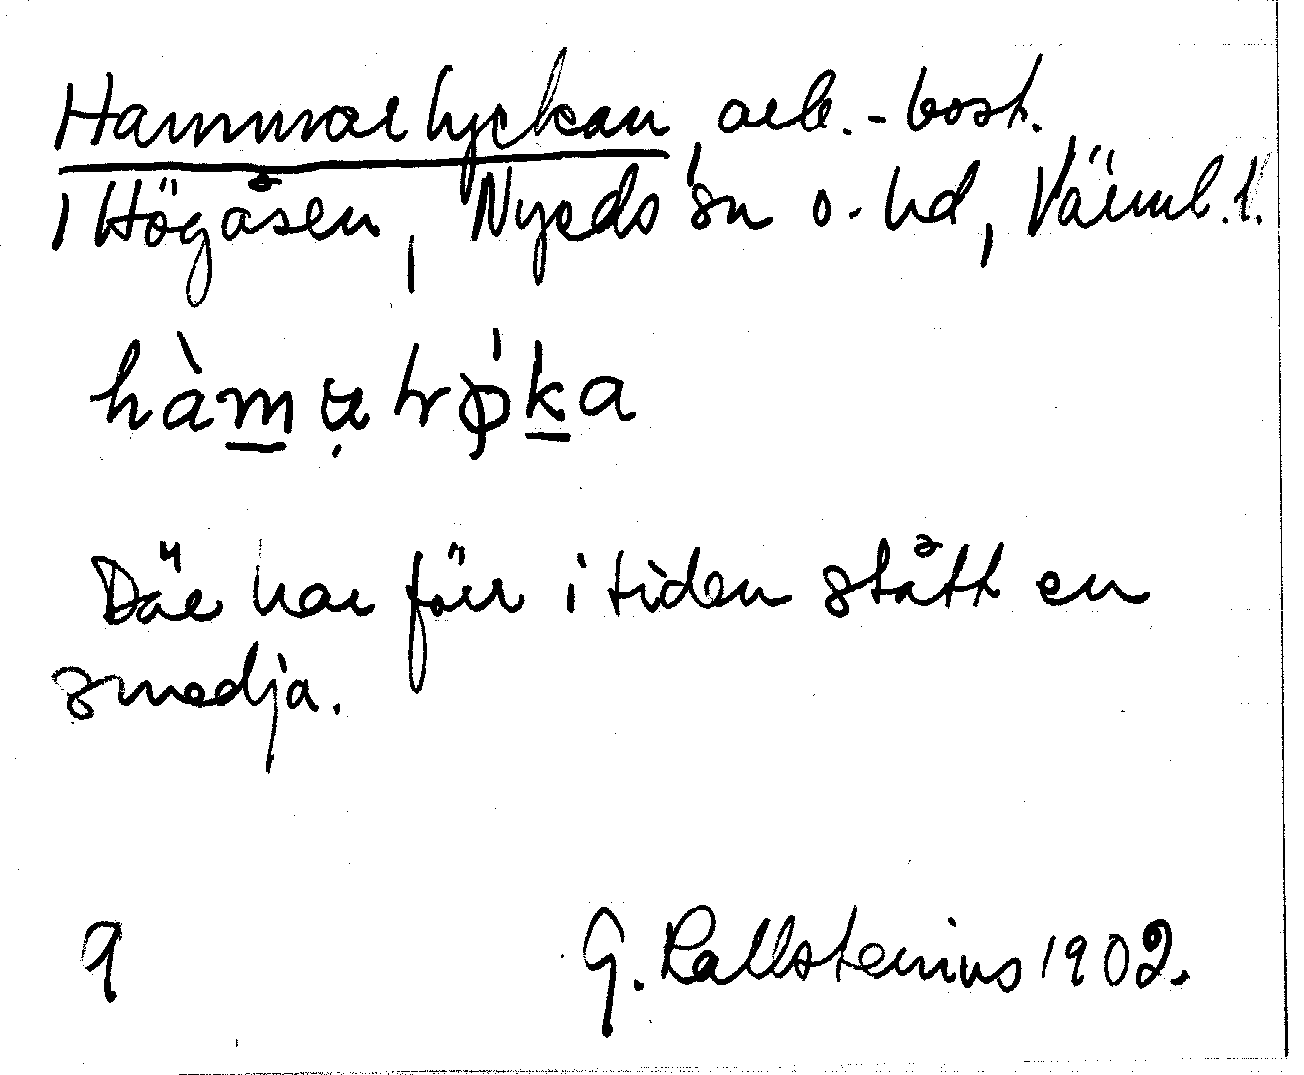 Hammarlyckan, arb.-bost.
i Högåsen, Nyeds sn o. hd, Värml. l.
Där har förr i tiden stått en
smedja.
9 G. Kallstenius 1902.